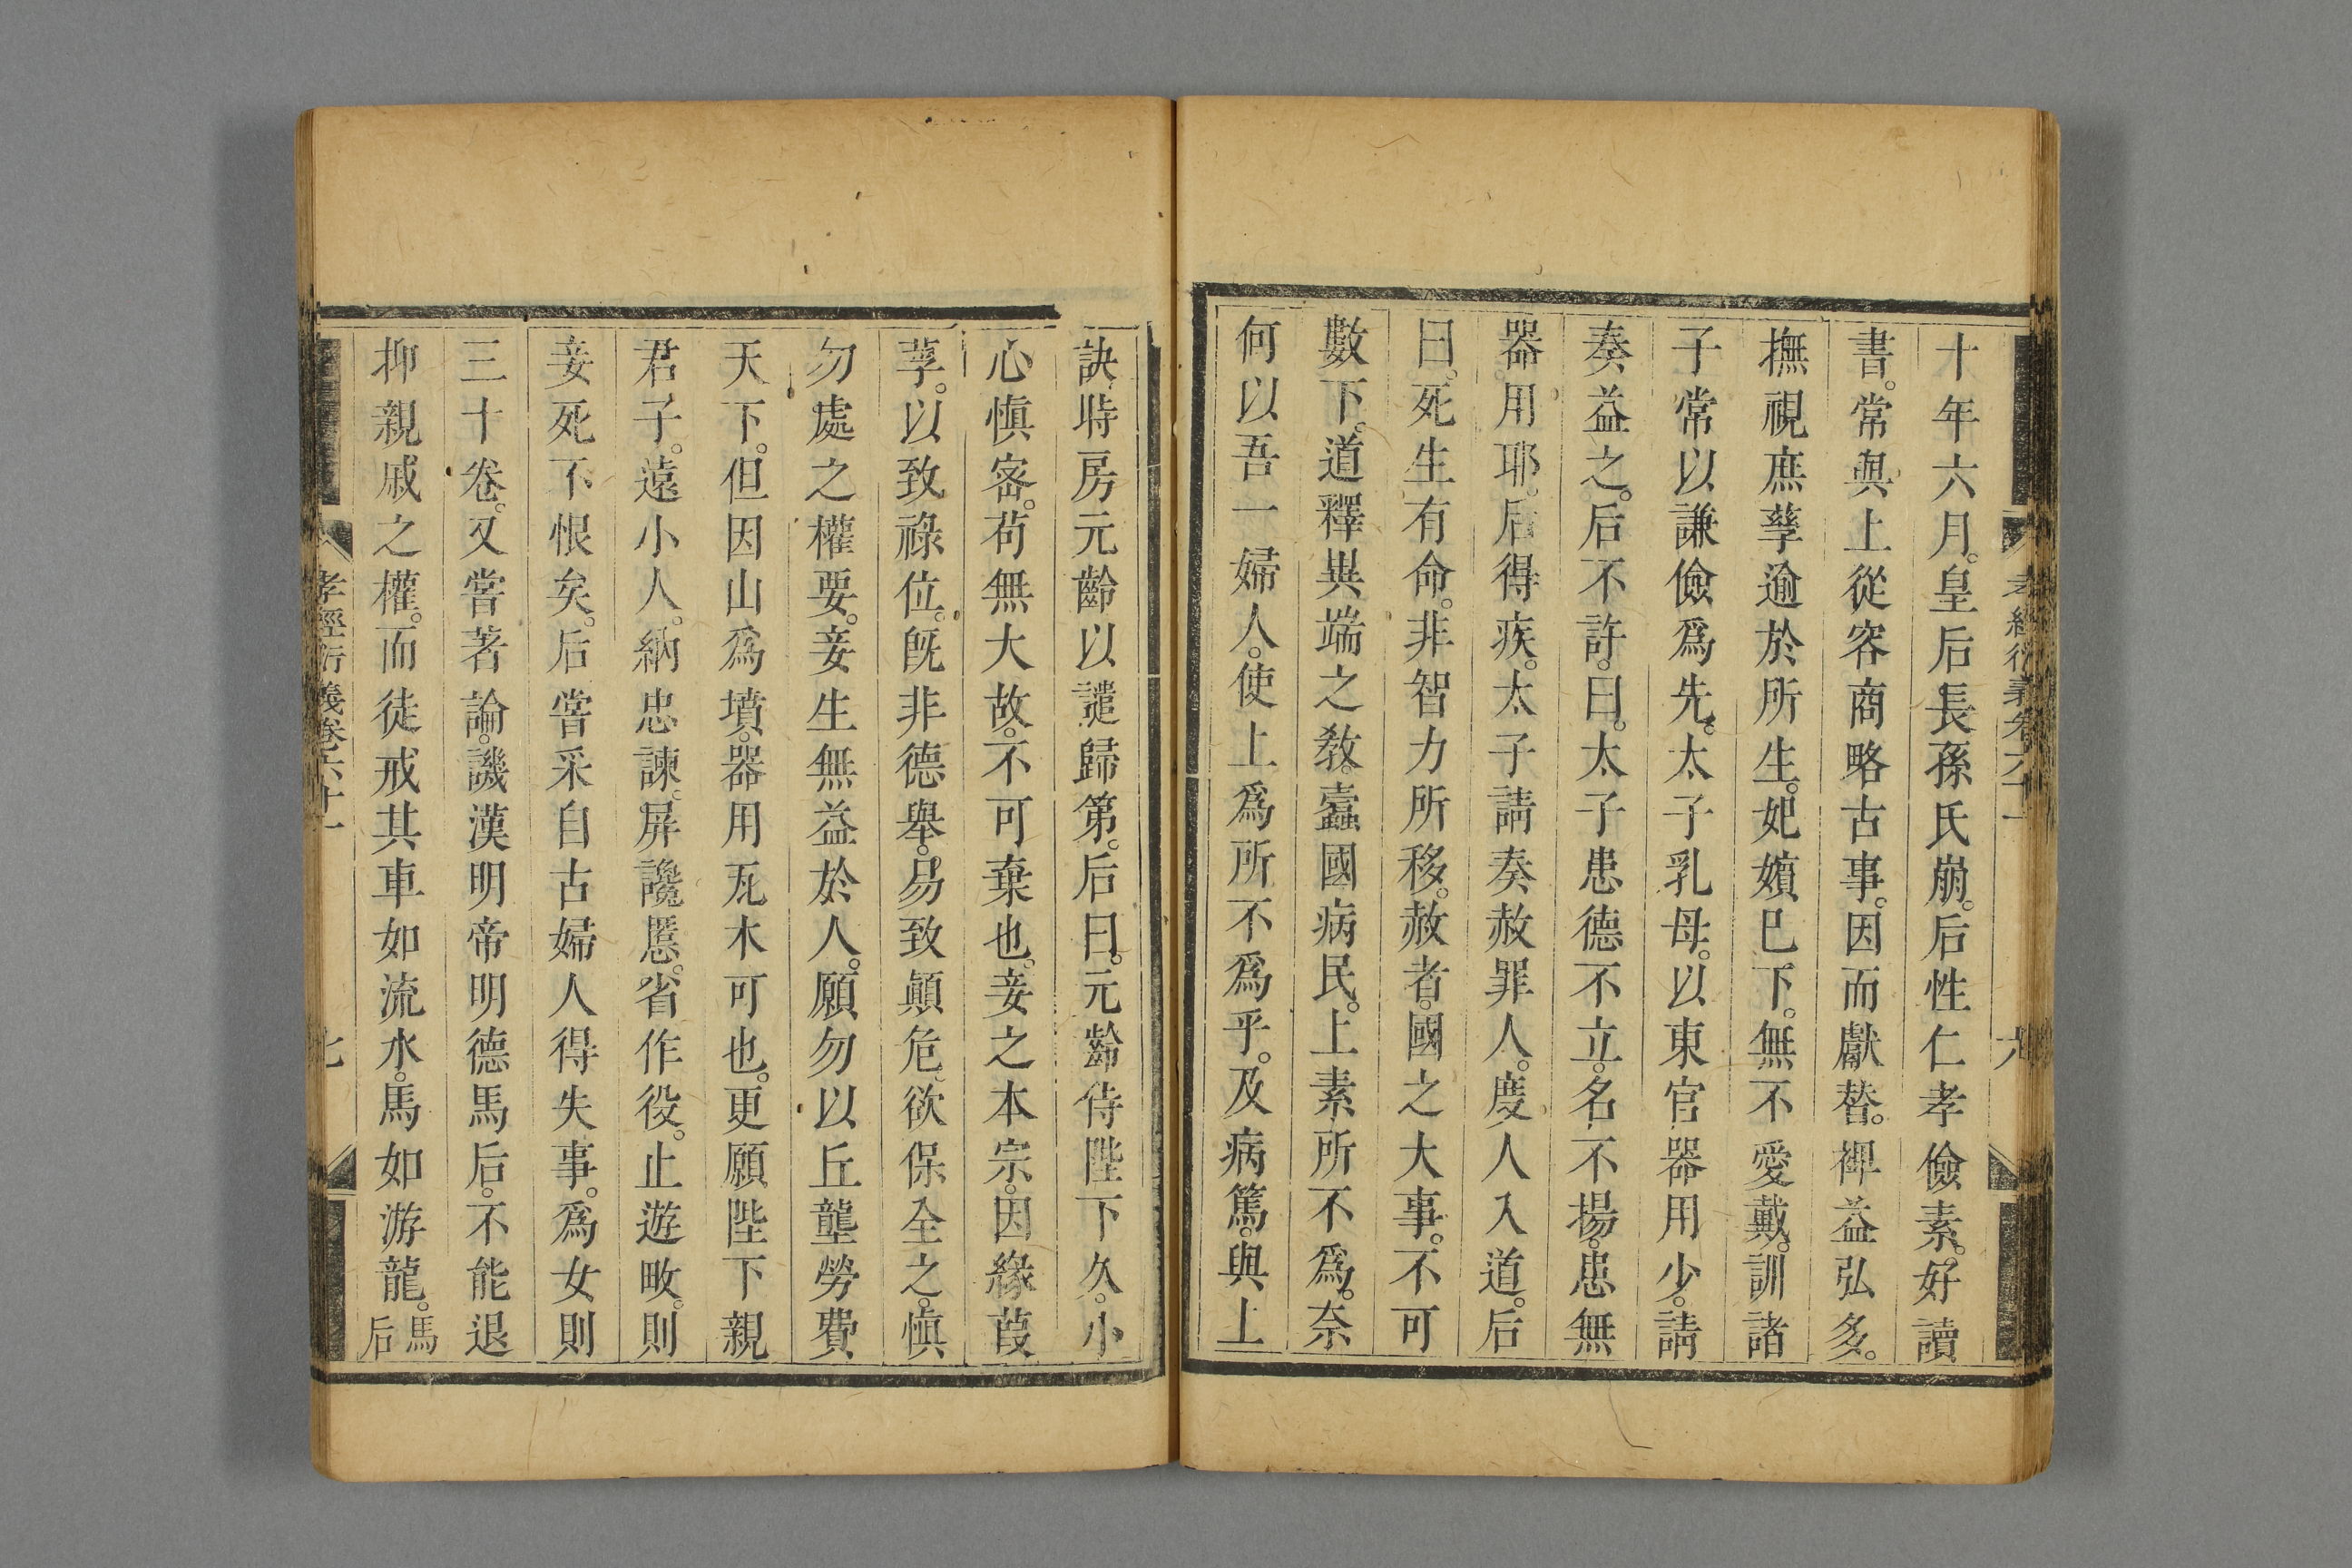 十年六月。皇后長孫氏崩。后性仁孝儉素。好讀
書。常與上從容商略古事。因而獻替。裨益弘多。
撫視庶孽。逾於所生。妃嬪已下。無不愛戴。訓諸
子常以謙儉爲先。太子乳母。以東宮器用少。請
奏益之。后不許。曰。太子患德不立。名不揚。患無
器用耶。后得疾。太子請奏赦罪人。度人入道。后
曰。死生有命。非智力所移。赦者。國之大事。不可
數下。道釋異端之敎。蠹國病民。上素所不爲。奈
何以吾一婦人。使上爲所不爲乎。及病篤。與上
訣。時房元齡以譴歸第。后曰。元齡侍陛下久。小
心愼密。苟無大故。不可棄也。妾之本宗。因緣葭
莩。以致祿位。旣非德舉。易致顚危。欲保全之。愼
勿處之權要。妾生無益於人。願勿以丘壟勞費
天下。但因山爲墳。器用瓦木可也。更願陛下親
君子。遠小人。納忠諫。屏讒慝。省作役。止遊畋。則
妾死不恨矣。后嘗采自古婦人得失事。爲女則
三十卷。又嘗著論。譏漢明帝明德馬后。不能退
抑親戚之權。而徒戒其車如流水。馬如游龍。馬
后
孝經衍義卷六十一
七